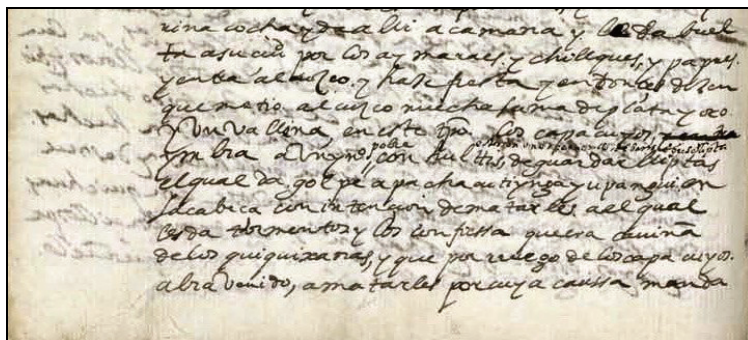 rina cocha y de alli a camana y la da buel
ta a su ciu por los aymaraes, y chilques, y papres.
y entra al cuzco. y haze fiesta y entonces dizen
que metio. al cuzco mucha suma de plata y oro.
y un vallina en este tpo. los capacuyos.
ymbia a un yndio pobre con de guardar lliptas
el qual da golpe a pachacutiynga yupangui. en
la cabeça con intencion de matarles a el qual
les da tormentos y los confiessa que era cauiña
de los quiquixanas, y que por ruego de los capacuyos.
abra venido, a matarles por cuya caussa manda